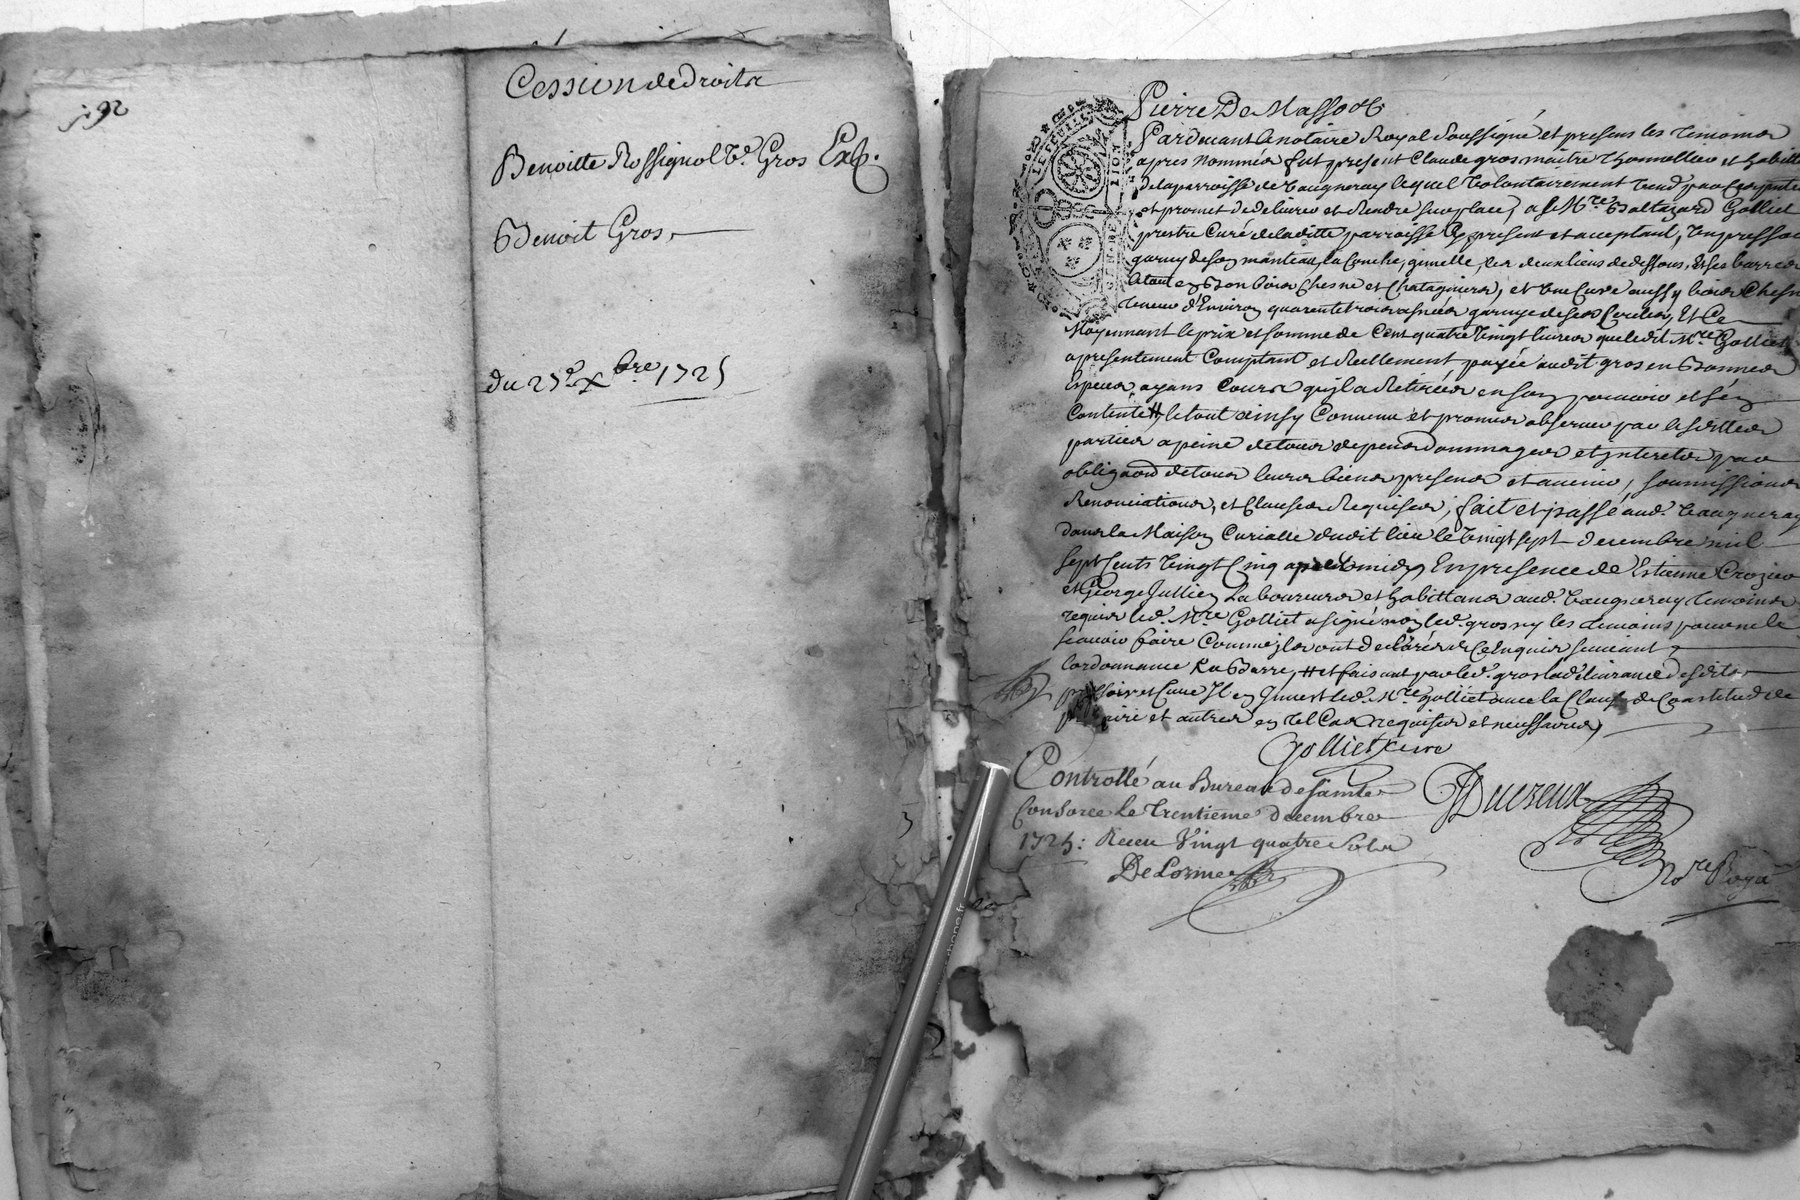 j92
Cession de droits
Benoitte Rossignol Ve. Gros Exp.
Benoit Gros
du 27e Xbre 1725
Pierre De Masso &c
Pardevant le notaire Royal soussigné et presens les temoins
apres nommés fut present Claude gros maitre thonnellier et habitt
de la parroisse de Vaugneray lequel volontairement vend par ces pntes
et promet de delivrer et rendre sur place, a Sr. Mre Baltazard Golliet
prestre Curé de laditte parroisse Cy present et acceptant, un pressoir
garny de son manteau, la Conche, gemelle, les deux liens de dessous, et ses barres
le tout en bon bois Chesne et Chatagniers, et une Cuve aussy bois Chesne
teneur d'Environ quarente trois asnées garnye de ses Cercles, Et Ce
Moyennant le prix et somme de Cent quatre vingt livres que ledit Mre Golliet
a presentement Comptant et reellement, payée audit gros en bonnes
Especes ayans Cours qu'il a retirées en son pouvoir et s'en
Contente # le tout ainsy Convenu et promis observer par lesdittes
parties a peine de tous depens dommages et interets par
obligaon de tous leurs biens presens et avenir, soumissions
Renonciations, et Clauses requises, fait et passé aud. Vaugneray
dans la Maison Curialle dudit lieu le vingt sept decembre mil
sept Cents vingt Cinq apres midy En presence de Estienne Crozier
et George Jullien Laboureurs et habittans aud. Vaugneray temoins
requis led. Mre Golliet a signé non led. gros ny les temoins pour ne le
scavoir faire Comme ils ont declarés de Ce Enquis suivant
lordonnance Ra Barre, # et faisant par led. gros la delivrance desdits
pressoir et Cuve Il en Invest led. Mre Golliet avec la Clause de Constitut de
precaire et autres en tel Cas requises et necessaires
Golliet Curé
Controllé au Bureau de Sainte
Consorce Le trentieme decembre
1725: Receu Vingt quatre Sols
DeLorme
Ducreux
Nore Royal